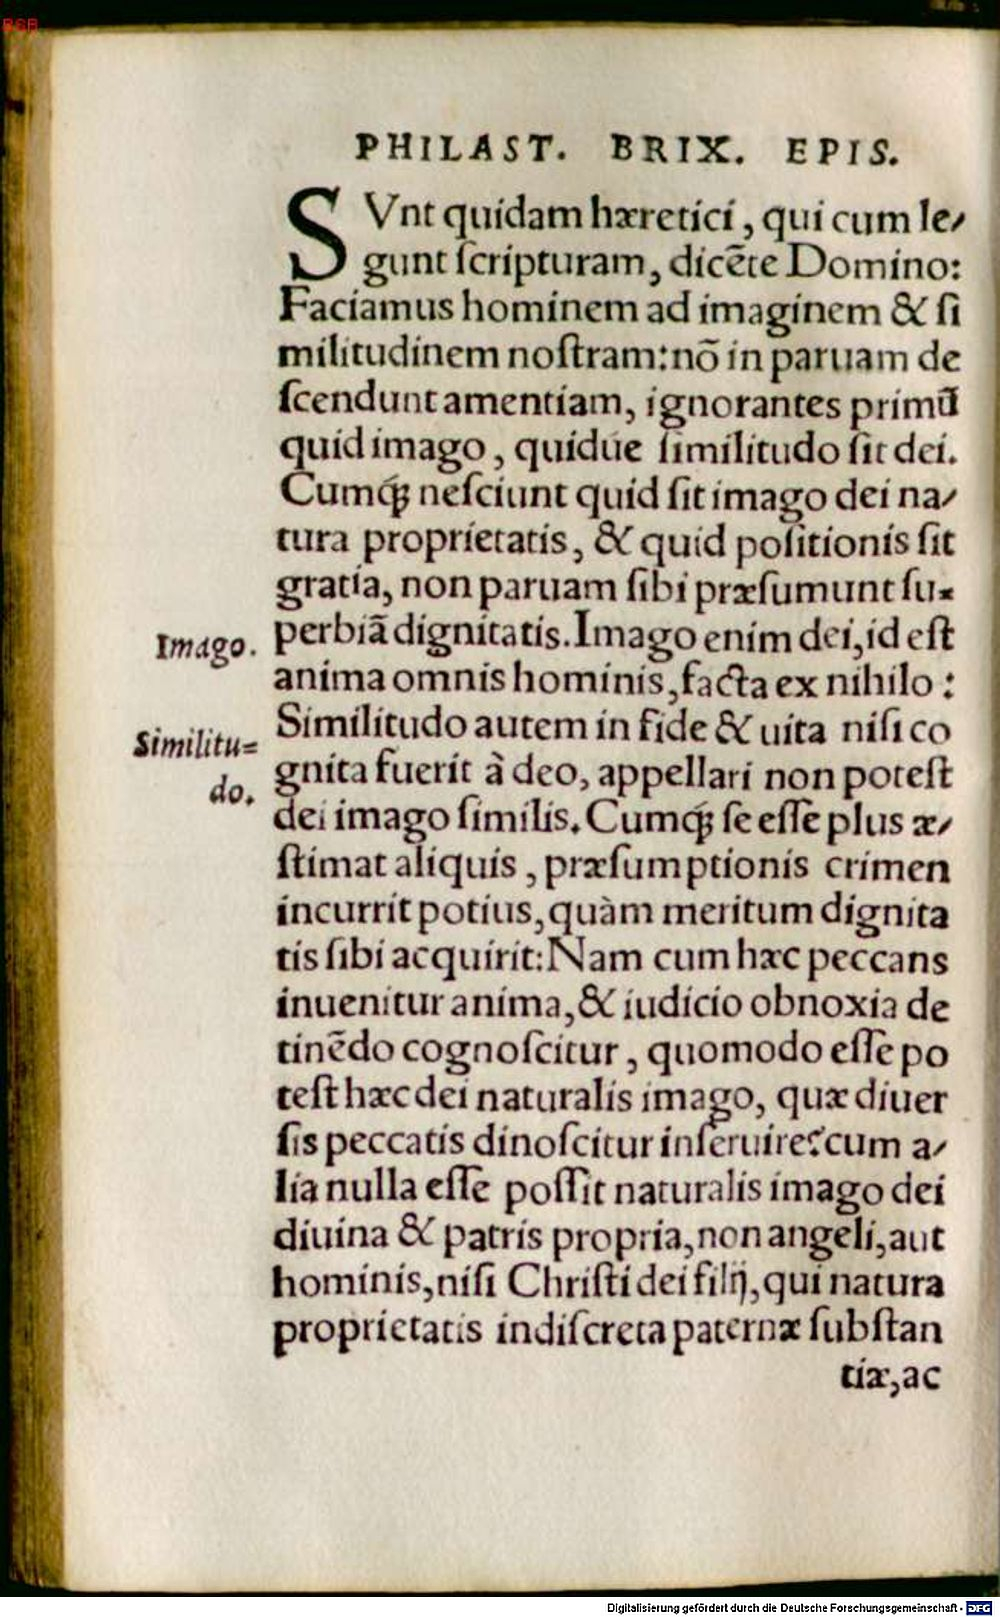 BSB
PHILAST. BRIX. EPIS.
SVnt quidam hæretici, qui cum le/
gunt ſcripturam, dicẽte Domino:
Faciamus hominem ad imaginem & ſi
militudinem noſtram: nõ in paruam de
ſcendunt amentiam, ignorantes primũ
quid imago, quidúe ſimilitudo ſit dei.
Cumq́ꝫ neſciunt quid ſit imago dei na/
tura proprietatis, & quid poſitionis ſit
gratia, non paruam ſibi præſumunt ſu-
Imago. perbiã dignitatis. Imago enim dei, id eſt
anima omnis hominis, facta ex nihilo:
Similitu= Similitudo autem in fide & uita niſi co
do. gnita fuerit à deo, appellari non poteſt
dei imago ſimilis. Cumq́ꝫ ſe eſſe plus æ/
ſtimat aliquis, præſumptionis crimen
incurrit potius, quàm meritum dignita
tis ſibi acquirit: Nam cum hæc peccans
inuenitur anima, & iudicio obnoxia de
tinẽdo cognoſcitur, quomodo eſſe po
teſt hæc dei naturalis imago, quæ diuer
ſis peccatis dinoſcitur inſeruire? cum a/
lia nulla eſſe poſſit naturalis imago dei
diuina & patris propria, non angeli, aut
hominis, niſi Chriſti dei filij, qui natura
proprietatis indiſcreta paternæ ſubſtan
tiæ, ac
Digitalisierung gefördert durch die Deutsche Forschungsgemeinschaft - DFG